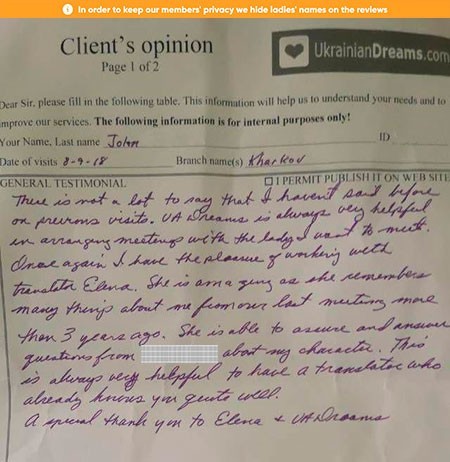 In order to keep our members' privacy we hide ladies' names on the reviews
Client's opinion
Page 1 of 2
UkrainianDreams.com
Dear Sir, please fill in the following table. This information will help us to understand your needs and to
improve our services. The following information is for internal purposes only!
Your Name, Last name John ID
Date of visits 8-9-18 Branch name(s) Kharkov
GENERAL TESTIMONIAL I PERMIT PUBLISH IT ON WEB SITE
There is not a lot to say that I havent said before
on previous visits. UA Dreams is always very helpful
in arranging meetings with the lady I want to meet.
Once again I have the pleasure of working with
translator Elena. She is amazing as she remembers
many things about me from our last meeting more
than 3 years ago. She is able to assure and answer
questions from about my character. This
is always very helpful to have a translator who
already knows you quite well.
A special thank you to Elena & UADreams